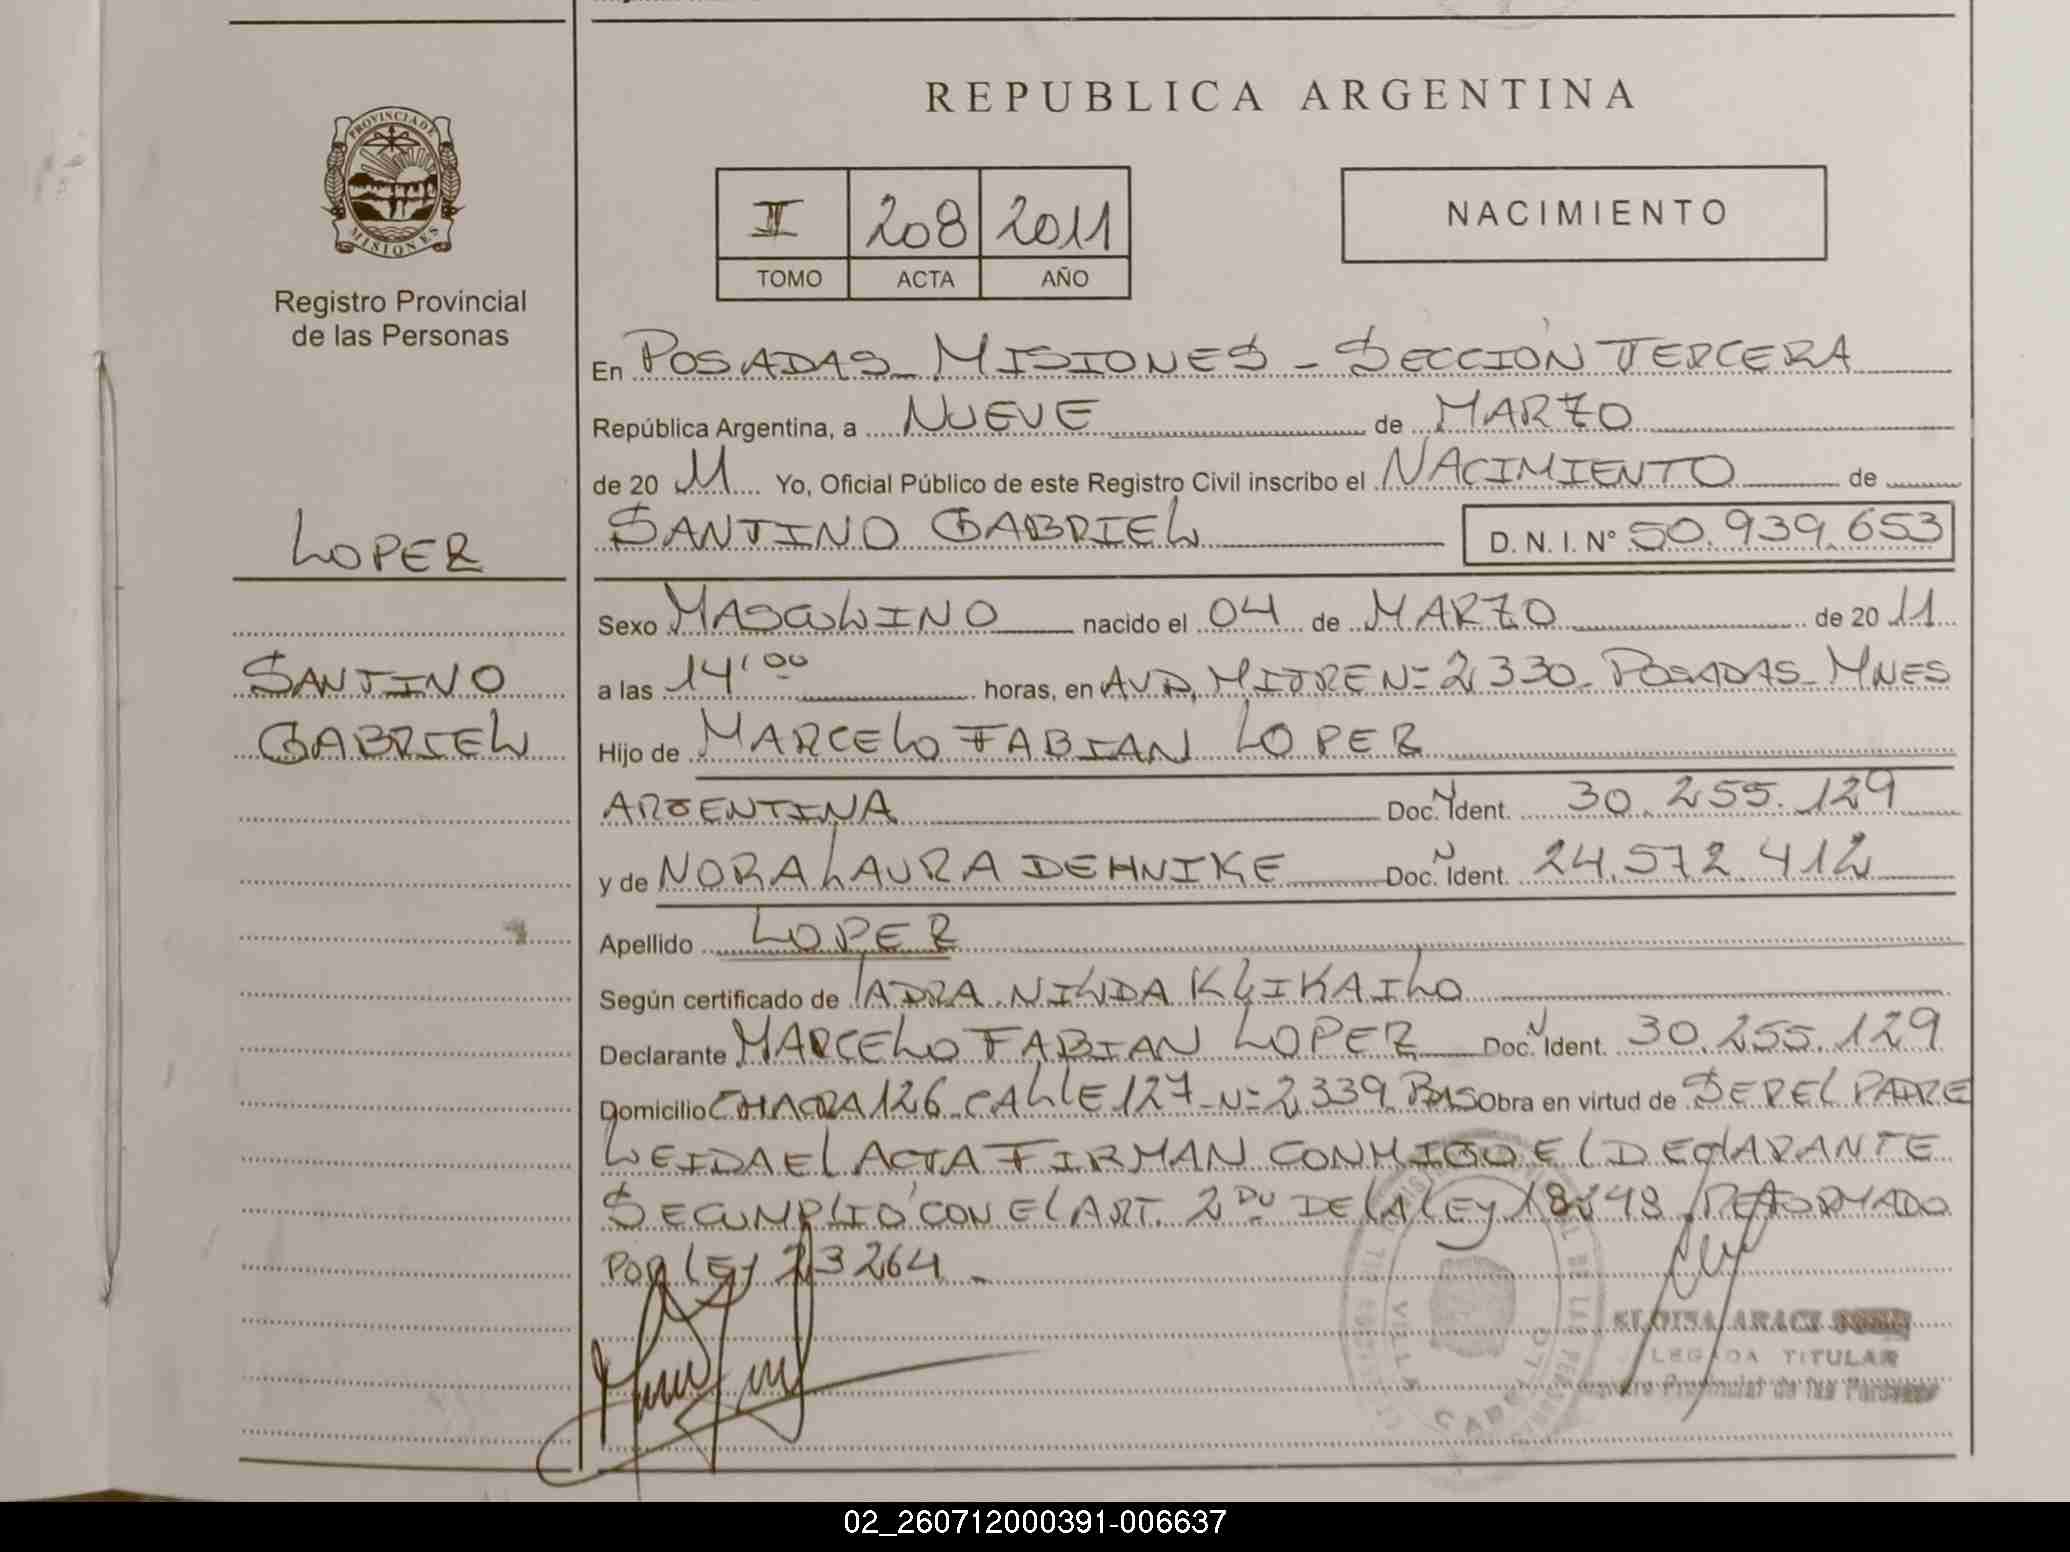 REPUBLICA ARGENTINA
PROVINCIA DE
MISIONES
Registro Provincial
de las Personas
II 208 2011
TOMO ACTA AÑO
NACIMIENTO
En POSADAS - MISIONES - SECCION TERCERA
República Argentina, a NUEVE de MARZO
de 20 11 Yo, Oficial Público de este Registro Civil inscribo el NACIMIENTO de
SANTINO GABRIEL D. N. I. N° 50.939.653
LOPEZ
SANTINO
GABRIEL
Sexo MASCULINO nacido el 04 de MARZO de 20 11
a las 14:00 horas, en AVD. MITRE N= 2330 - POSADAS - MNES
Hijo de MARCELO FABIAN LOPEZ
ARGENTINA Doc. N Ident. 30.255.129
y de NORA LAURA DEHNIKE Doc. N Ident. 24.572.412
Apellido LOPEZ
Según certificado de NILDA KLIKAILO
Declarante MARCELO FABIAN LOPEZ Doc. N Ident. 30.255.129
Domicilio CHACRA 126 - CALLE 127 - N= 2339 PDAS Obra en virtud de SER EL PADRE
LEIDA EL ACTA FIRMAN CONMIGO EL DECLARANTE
SE CUMPLIO CON EL ART. 2DO DE LA LEY 18248 REFORMADO
POR LEY 23264 -
ELOISA ARACI
LEGADA TITULAR
Registro Provincial de las Personas
CABELLO
02_260712000391-006637